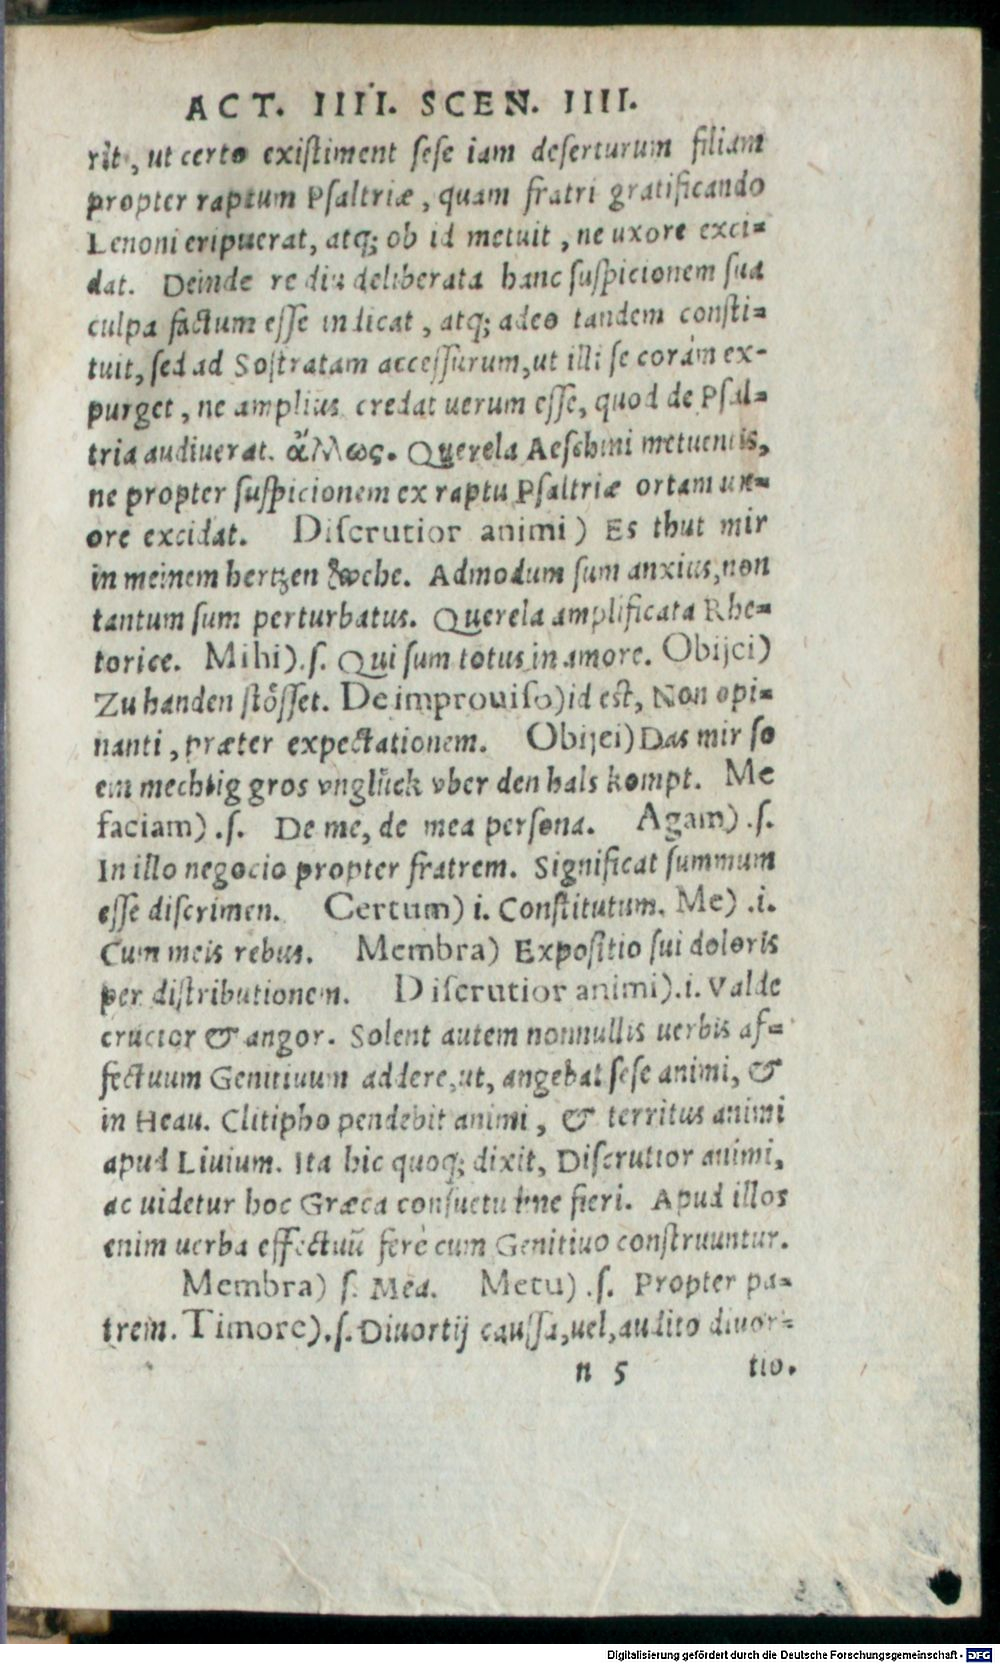 ACT. IIII. SCEN. IIII.
rit, ut certo existiment sese iam deserturum filiam
propter raptum Psaltriæ, quam fratri gratificando
Lenoni eripuerat, atq; ob id metuit, ne uxore exci=
dat. Deinde re diu deliberata hanc suspicionem sua
culpa factum esse indicat, atq; adeo tandem consti=
tuit, sed ad Sostratam accessurum, ut illi se coràm ex-
purget, ne amplius credat uerum esse, quod de Psal=
tria audiuerat. ἄλλως. Querela Aeschini metuentis,
ne propter suspicionem ex raptu Psaltriæ ortam ux=
ore excidat. Discrutior animi) Es thut mir
in meinem hertzen wehe. Admodum sum anxius, non
tantum sum perturbatus. Querela amplificata Rhe=
torice. Mihi).s. Qui sum totus in amore. Obijci)
Zu handen stösset. De improuiso) id est, Non opi=
nanti, præter expectationem. Obijei) Das mir so
ein mechtig gros vnglück vber den hals kompt. Me
faciam).s. De me, de mea persona. Agam).s.
In illo negocio propter fratrem. Significat summum
esse discrimen. Certum) i. Constitutum. Me).i.
Cum meis rebus. Membra) Expositio sui doloris
per distributionem. Discrutior animi).i. Valde
crucior & angor. Solent autem nonnullis uerbis af=
fectuum Genitiuum addere, ut, angebat sese animi, &
in Heau. Clitipho pendebit animi, & territus animi
apud Liuium. Ita hic quoq; dixit, Discrutior animi,
ac uidetur hoc Græca consuetudine fieri. Apud illos
enim uerba effectuũ ferè cum Genitiuo construuntur.
Membra) s. Mea. Metu).s. Propter pa=
trem. Timore).s. Diuortij caussa, uel, audito diuor=
n 5 tio.
Digitalisierung gefördert durch die Deutsche Forschungsgemeinschaft - DFG